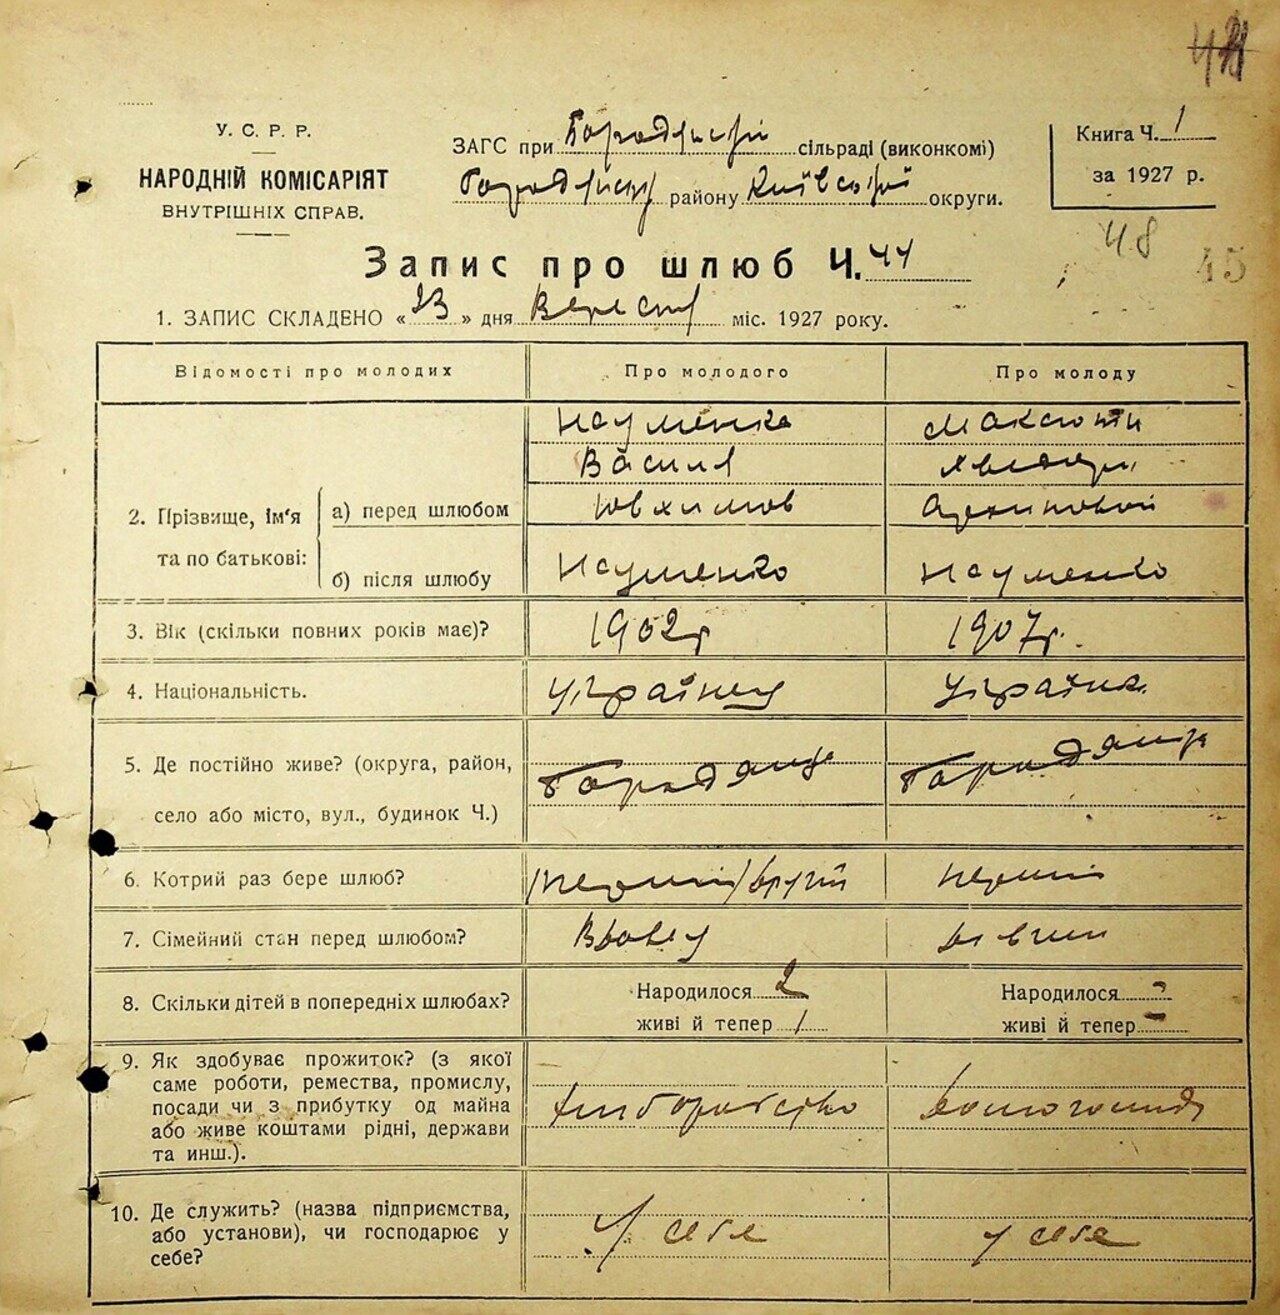 У. С. Р. Р.
НАРОДНІЙ КОМІСАРІЯТ
ВНУТРІШНІХ СПРАВ.
ЗАГС при сільраді (виконкомі)
району Київської округи.
Книга Ч. 1
за 1927 р.
48
45
Запис про шлюб Ч. 44
1. ЗАПИС СКЛАДЕНО « 23 » дня Вересня міс. 1927 року.
Відомості про молодих
Про молодого
Про молоду
2. Прізвище, ім'я та по батькові:
а) перед шлюбом
Науменко
Василя
Юхимов
Максюти
Архиповой
б) після шлюбу
Науменко
Науменко
3. Вік (скільки повних років має)?
1902 г
1907 г.
4. Національність.
Українец
Українка
5. Де постійно живе? (округа, район, село або місто, вул., будинок Ч.)
Бородянце
Бородянце
6. Котрий раз бере шлюб?
другий
перший
7. Сімейний стан перед шлюбом?
Вдовец
8. Скільки дітей в попередніх шлюбах?
Народилося 2
живі й тепер 1
Народилося -
живі й тепер -
9. Як здобуває прожиток? (з якої
саме роботи, ремества, промислу,
посади чи з прибутку од майна
або живе коштами рідні, держави
та инш.).
хліборобство
10. Де служить? (назва підприємства,
або установи), чи господарює у
себе?
У себе
у себе